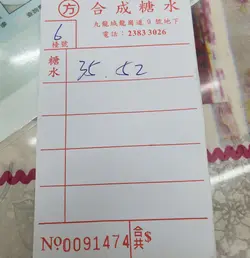 方 合成糖水
九龍城龍崗道 9 號地下
電話：2383 3026
6
檯號
糖水
35. 52
合共$
No 0091474